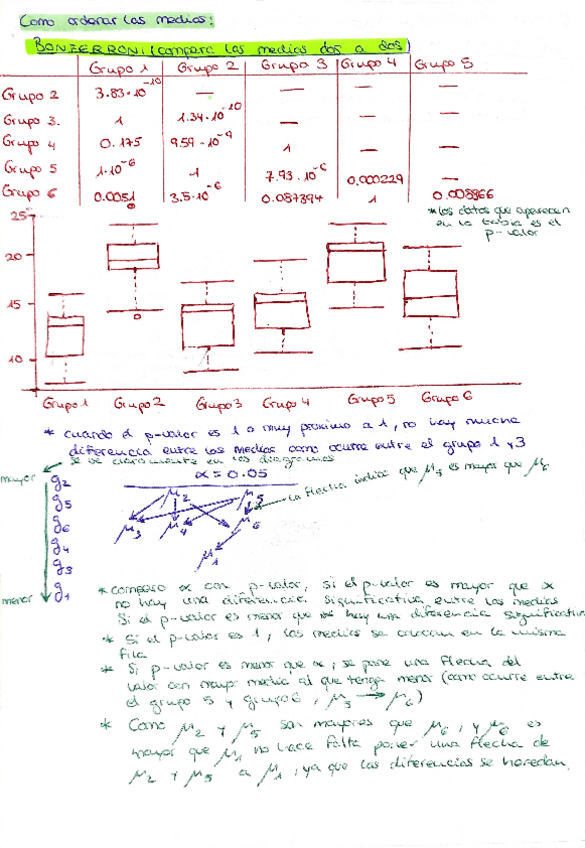 Como ordenar las medias:
BONFERRONI (compara las medias dos a dos)
Grupo 1 Grupo 2 Grupo 3 Grupo 4 Grupo 5
Grupo 2 3.83·10⁻¹⁰ — — — —
Grupo 3. 1 1.34·10⁻¹⁰ — — —
Grupo 4 0.175 9.59·10⁻⁹ 1 — —
Grupo 5 1·10⁻⁶ 1 7.93·10⁻⁶ 0.000229 —
Grupo 6 0.0051 3.5·10⁻⁶ 0.087394 1 0.008966
* los datos que aparecen
en la tabla es el
p-valor
25
20
15
10
Grupo 1 Grupo 2 Grupo 3 Grupo 4 Grupo 5 Grupo 6
* cuando el p-valor es 1 o muy proximo a 1, no hay mucha
diferencia entre las medias como ocurre entre el grupo 1 y 3
se ve claramente en los diagramas
α = 0.05
mayor g2
g5
g6
g4
g3
menor g1
μ2 μ5
μ3 μ4 μ6
μ1
La flecha indica que μ5 es mayor que μ6
* comparo α con p-valor, si el p-valor es mayor que α
no hay una diferencia significativa entre las medias
Si el p-valor es menor que hay una diferencia significativa
* Si el p-valor es 1, las medias se colocan en la misma
fila
* Si p-valor es menor que α, se pone una flecha del
valor con mayor media al que tenga menor (como ocurre entre
el grupo 5 y grupo 6, μ5 → μ6)
* Como μ2 y μ5 son mayores que μ6, y μ6 es
mayor que μ1 no hace falta poner una flecha de
μ2 y μ5 a μ1, ya que las diferencias se heredan.